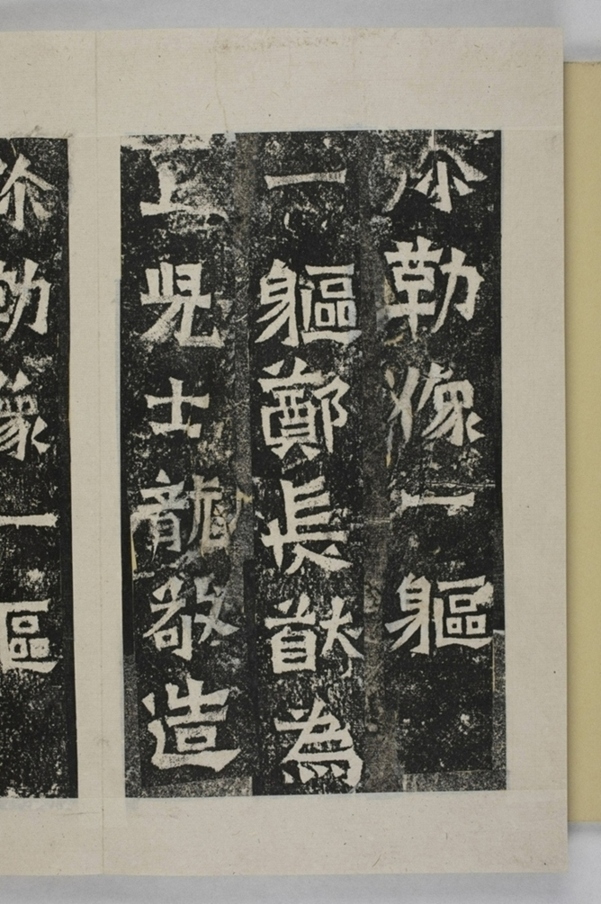 弥勒像一軀
一軀鄭長猷為
亡兒士龍敬造
弥勒像一軀